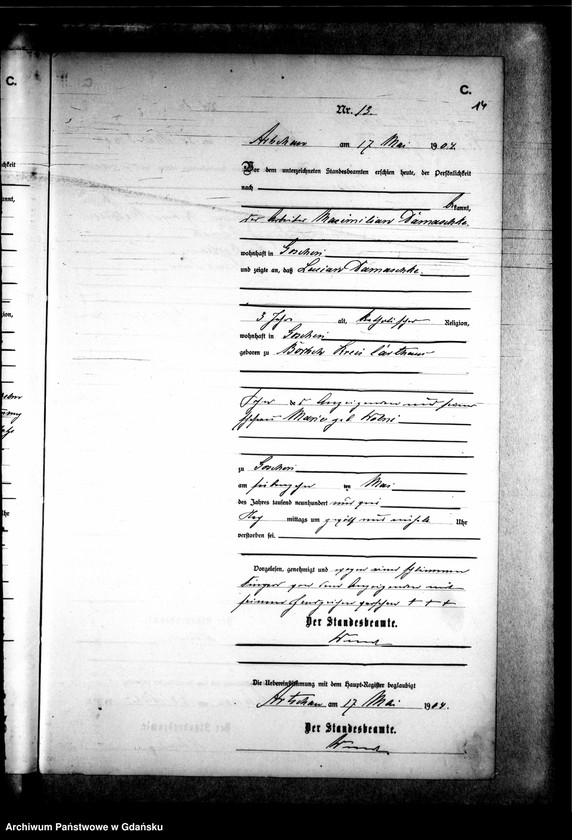 C.
C.
14
Nr. 13.
am 17 Mai 1904.
Vor dem unterzeichneten Standesbeamten erschien heute, der Persönlichkeit
nach
bekannt,
der Arbeiter Maximilian Damaschke
wohnhaft in Goschin
und zeigte an, daß Lucian Damaschke
3 Jahr alt, katholischer Religion,
wohnhaft in Goschin
geboren zu Kreis Carthaus
Sohn des Anzeigenden und seiner
Ehefrau Marie geb.
zu Goschin
am ten Mai
des Jahres tausend neunhundert und vier
Nach mittags um zwölf und einhalb Uhr
verstorben sei.
Vorgelesen, genehmigt und wegen eines schlimmen
Fingers von dem Anzeigenden mit
seinem Handzeichen versehen + + +
Der Standesbeamte.
Die Uebereinstimmung mit dem Haupt-Register beglaubigt
am 17 Mai 1904.
Der Standesbeamte.
Archiwum Państwowe w Gdańsku